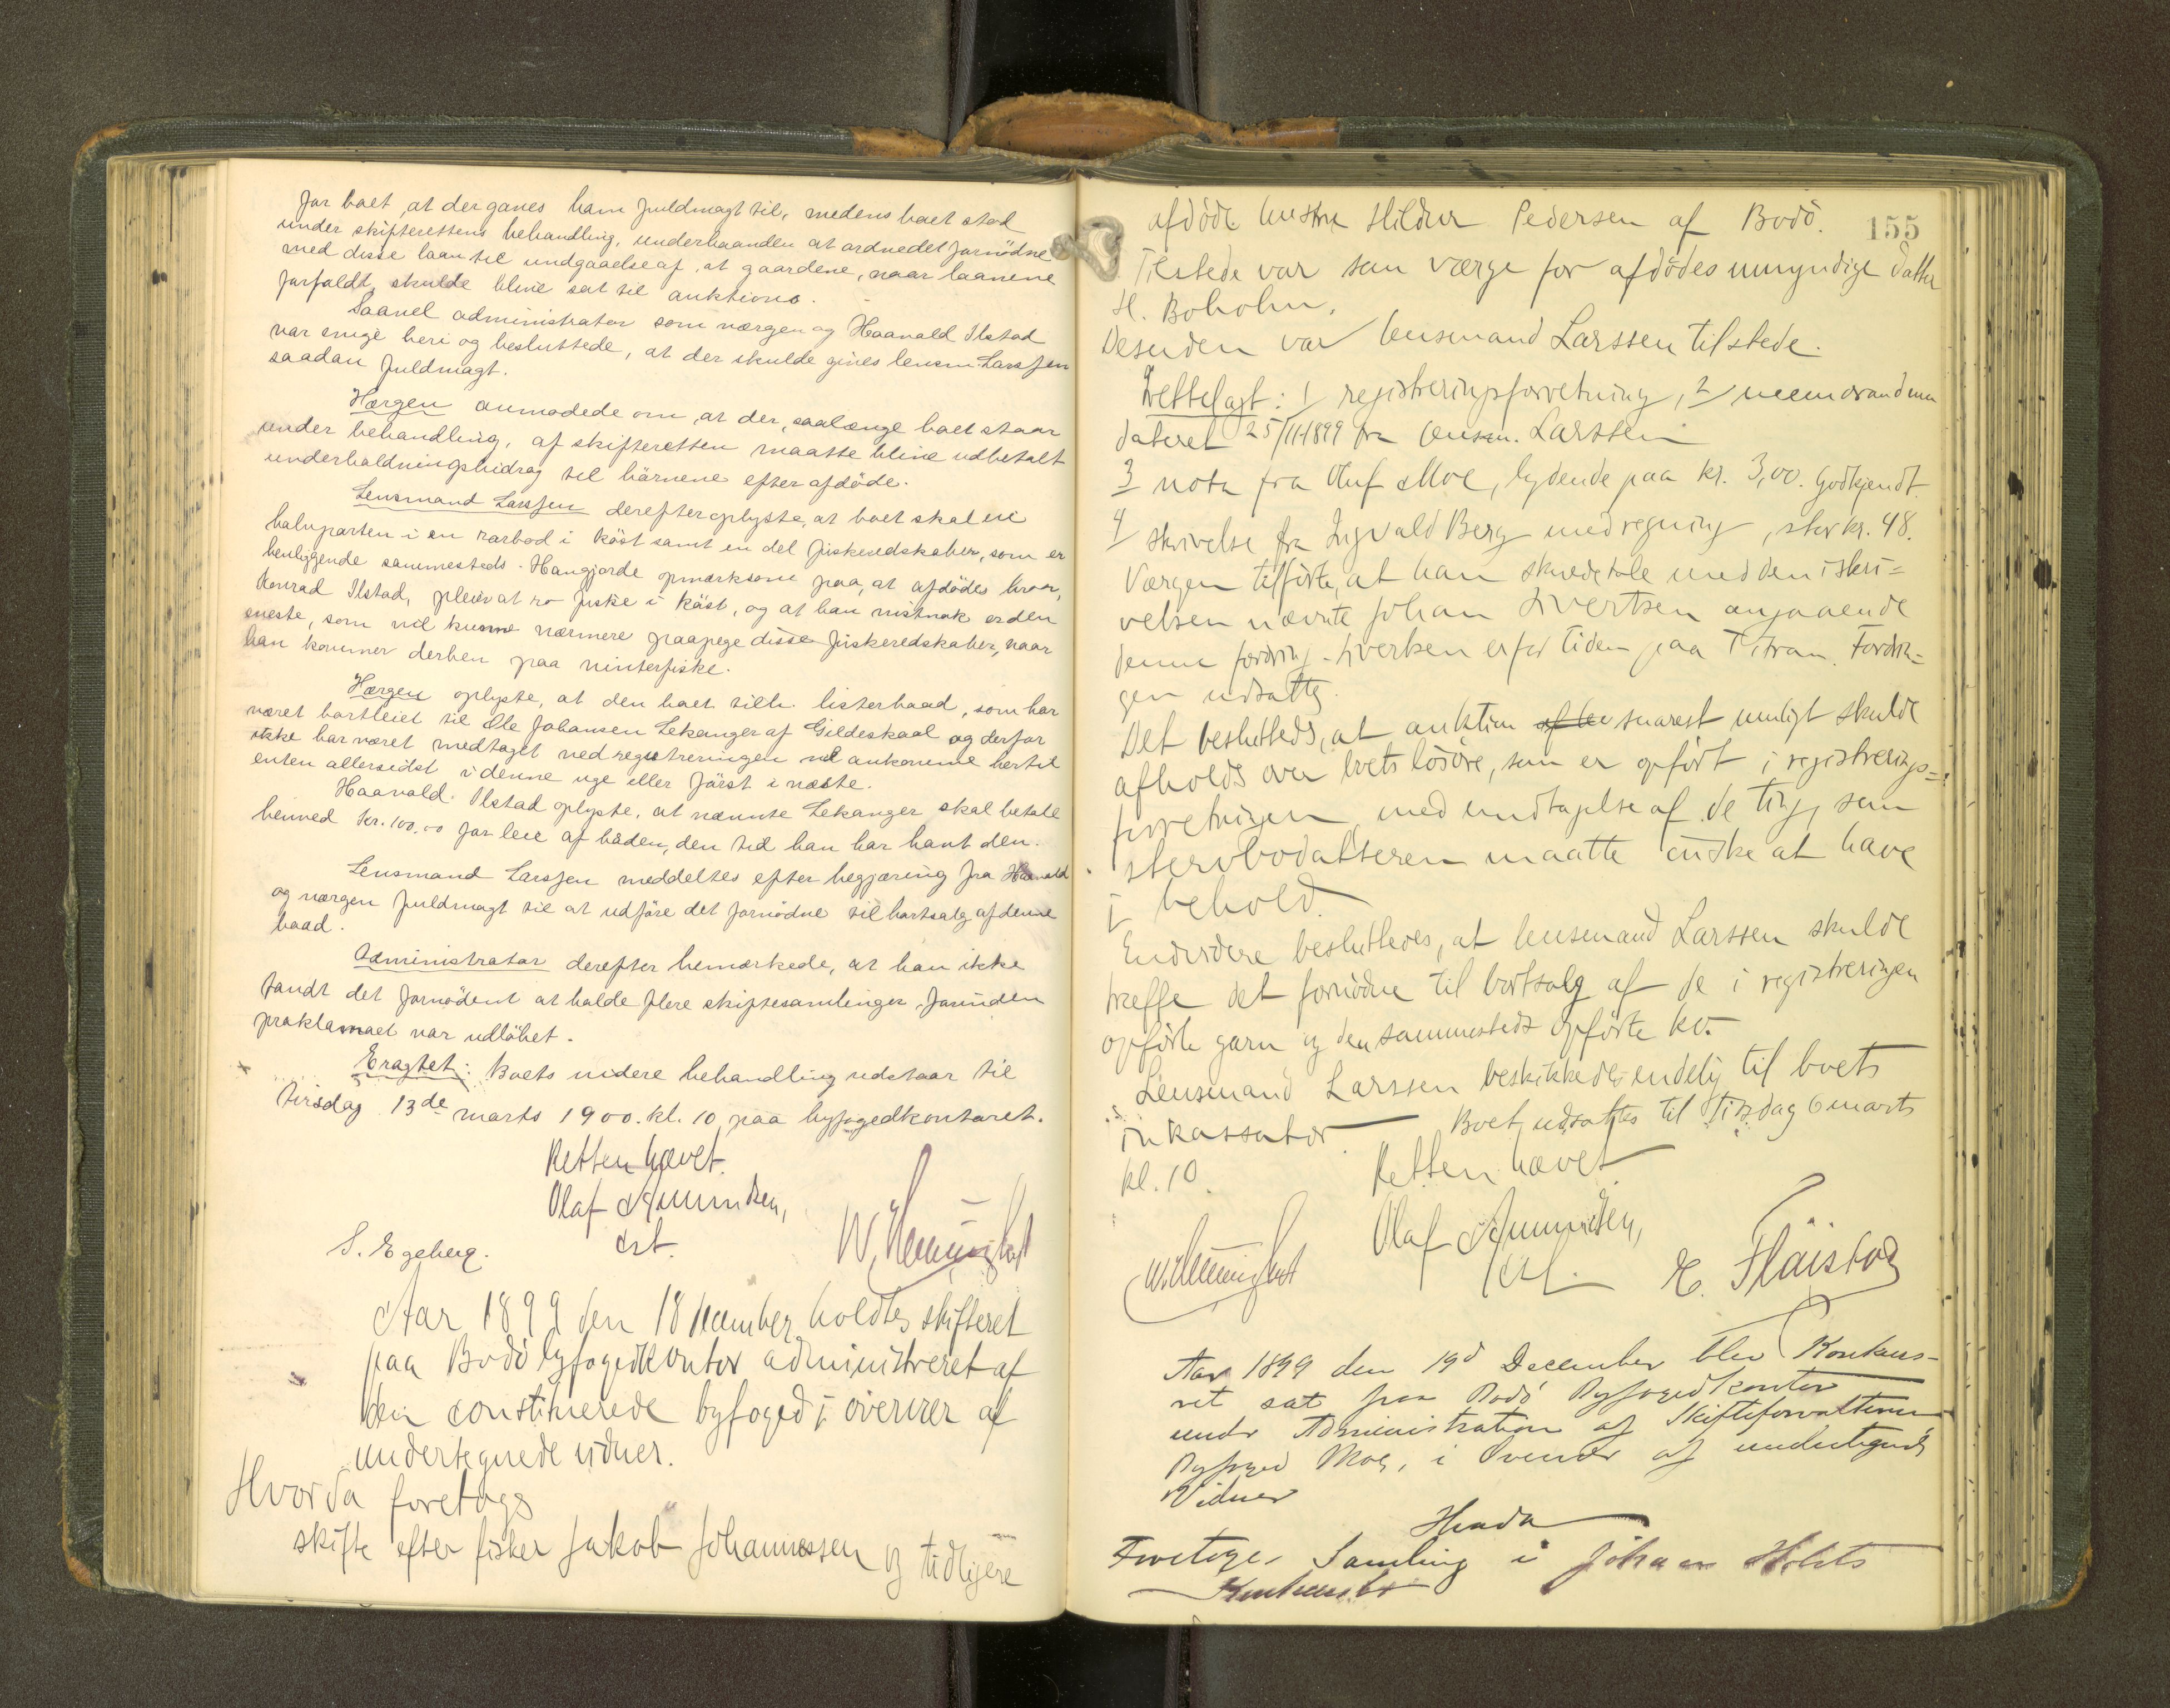 for boet, at der gaves ham fuldmagt til, medens boet stod
under skifterettens behandling, underhaanden at ordne det fornødne
med disse laan til undgaaelse af, at gaardene, naar laanene
forfaldt, skulde blive sat til auktion.
Saavel administrator som værgen og Haavald Ilstad
var enige heri og besluttede, at der skulde gives lensm. Larssen
saadan fuldmagt.
Værgen anmodede om, at der, saalænge boet staar
under behandling, af skifteretten maatte blive udbetalt
underholdningsbidrag til børnene efter afdøde.
Lensmand Larssen derefter oplyste, at boet skal eie
halvparten i en rorbod i Røst samt en del fiskeredskaber, som er
henliggende sammesteds. Han gjorde opmærksom paa, at afdødes bror,
Konrad Ilstad, pleier at ro fiske i Røst, og at han vistnok er den
eneste, som vil kunne nærmere paapege disse fiskeredskaber, naar
han kommer derhen paa vinterfiske.
Værgen oplyste, at den boet tilh. listerbaad, som har
været bortleiet til Ole Johansen Lekanger af Gildeskaal og derfor
ikke har været medtaget ved registreringen vil ankomme hertil
enten allersidst i denne uge eller først i næste.
Haavald Ilstad oplyste, at nævnte Lekanger skal betale
henved kr. 100,00 for leie af båden, den tid han har havt den.
Lensmand Larssen meddeltes efter begjæring fra Haavald
og værgen fuldmagt til at udføre det fornødne til bortsalg af denne
baad.
Administrator derefter bemærkede, at han ikke
fandt det fornødent at holde flere skiftesamlinger, forinden
proklamaet var udløbet.
Eragtet: Boets videre behandling udstaar til
tirsdag 13de marts 1900. kl. 10 paa byfogedkontoret.
Retten hævet.
Olaf Amundsen,
cst.
S. Egeberg.
Aar 1899 den 18 december holdtes skifteret
paa Bodø byfogedkontor administreret af
den constituerede byfoged i overvær af
undertegnede vidner.
Hvorda foretoges
skifte efter fisker Jakob Johannessen og tidligere
155
afdøde hustru Hildur Pedersen af Bodø.
Tilstede var som værge for afdødes umyndige datter
H. Boholm.
Desuden var lensmand Larssen tilstede.
Fremlagt: 1/ registreringsforretning, 2/ memorandum
dateret 25/11 1899 fra lensm. Larssen
3 nota fra Oluf Moe, lydende paa kr. 3,00. Godkjendt.
4/ skrivelse fra Ingvald Berg med regning, stor kr. 48.
Værgen tilførte, at han skulde tale med den i skri=
velsen nævnte Johan Sivertsen angaaende
denne fordring. Sivertsen er for tiden paa Titran. Fordrin=
gen udsattes.
Det besluttedes, at auktion snarest muligt skulde
afholdes over boets løsøre, som er opført i registrerings=
forretningen med undtagelse af de ting, som
stervbodatteren maatte ønske at have
i behold.
Endvidere besluttedes, at lensmand Larssen skulde
træffe det fornødne til bortsalg af de i registreringen
opførte garn og den sammesteds opførte ko.
Lensmand Larssen beskikkedes endelig til boets
inkassator. Boet udsattes til tirsdag 6 marts
kl. 10. Retten hævet.
Olaf Amundsen,
cst.
Aar 1899 den 19d December blev Konkurs-
ret sat paa Bodø Byfogedkontor
under Administration af Skifteforvalteren
Byfoged Moe, i Overvær af undertegnede
Vidner
Hvorda
Foretoges Samling i Johan Holsts
Konkursbo